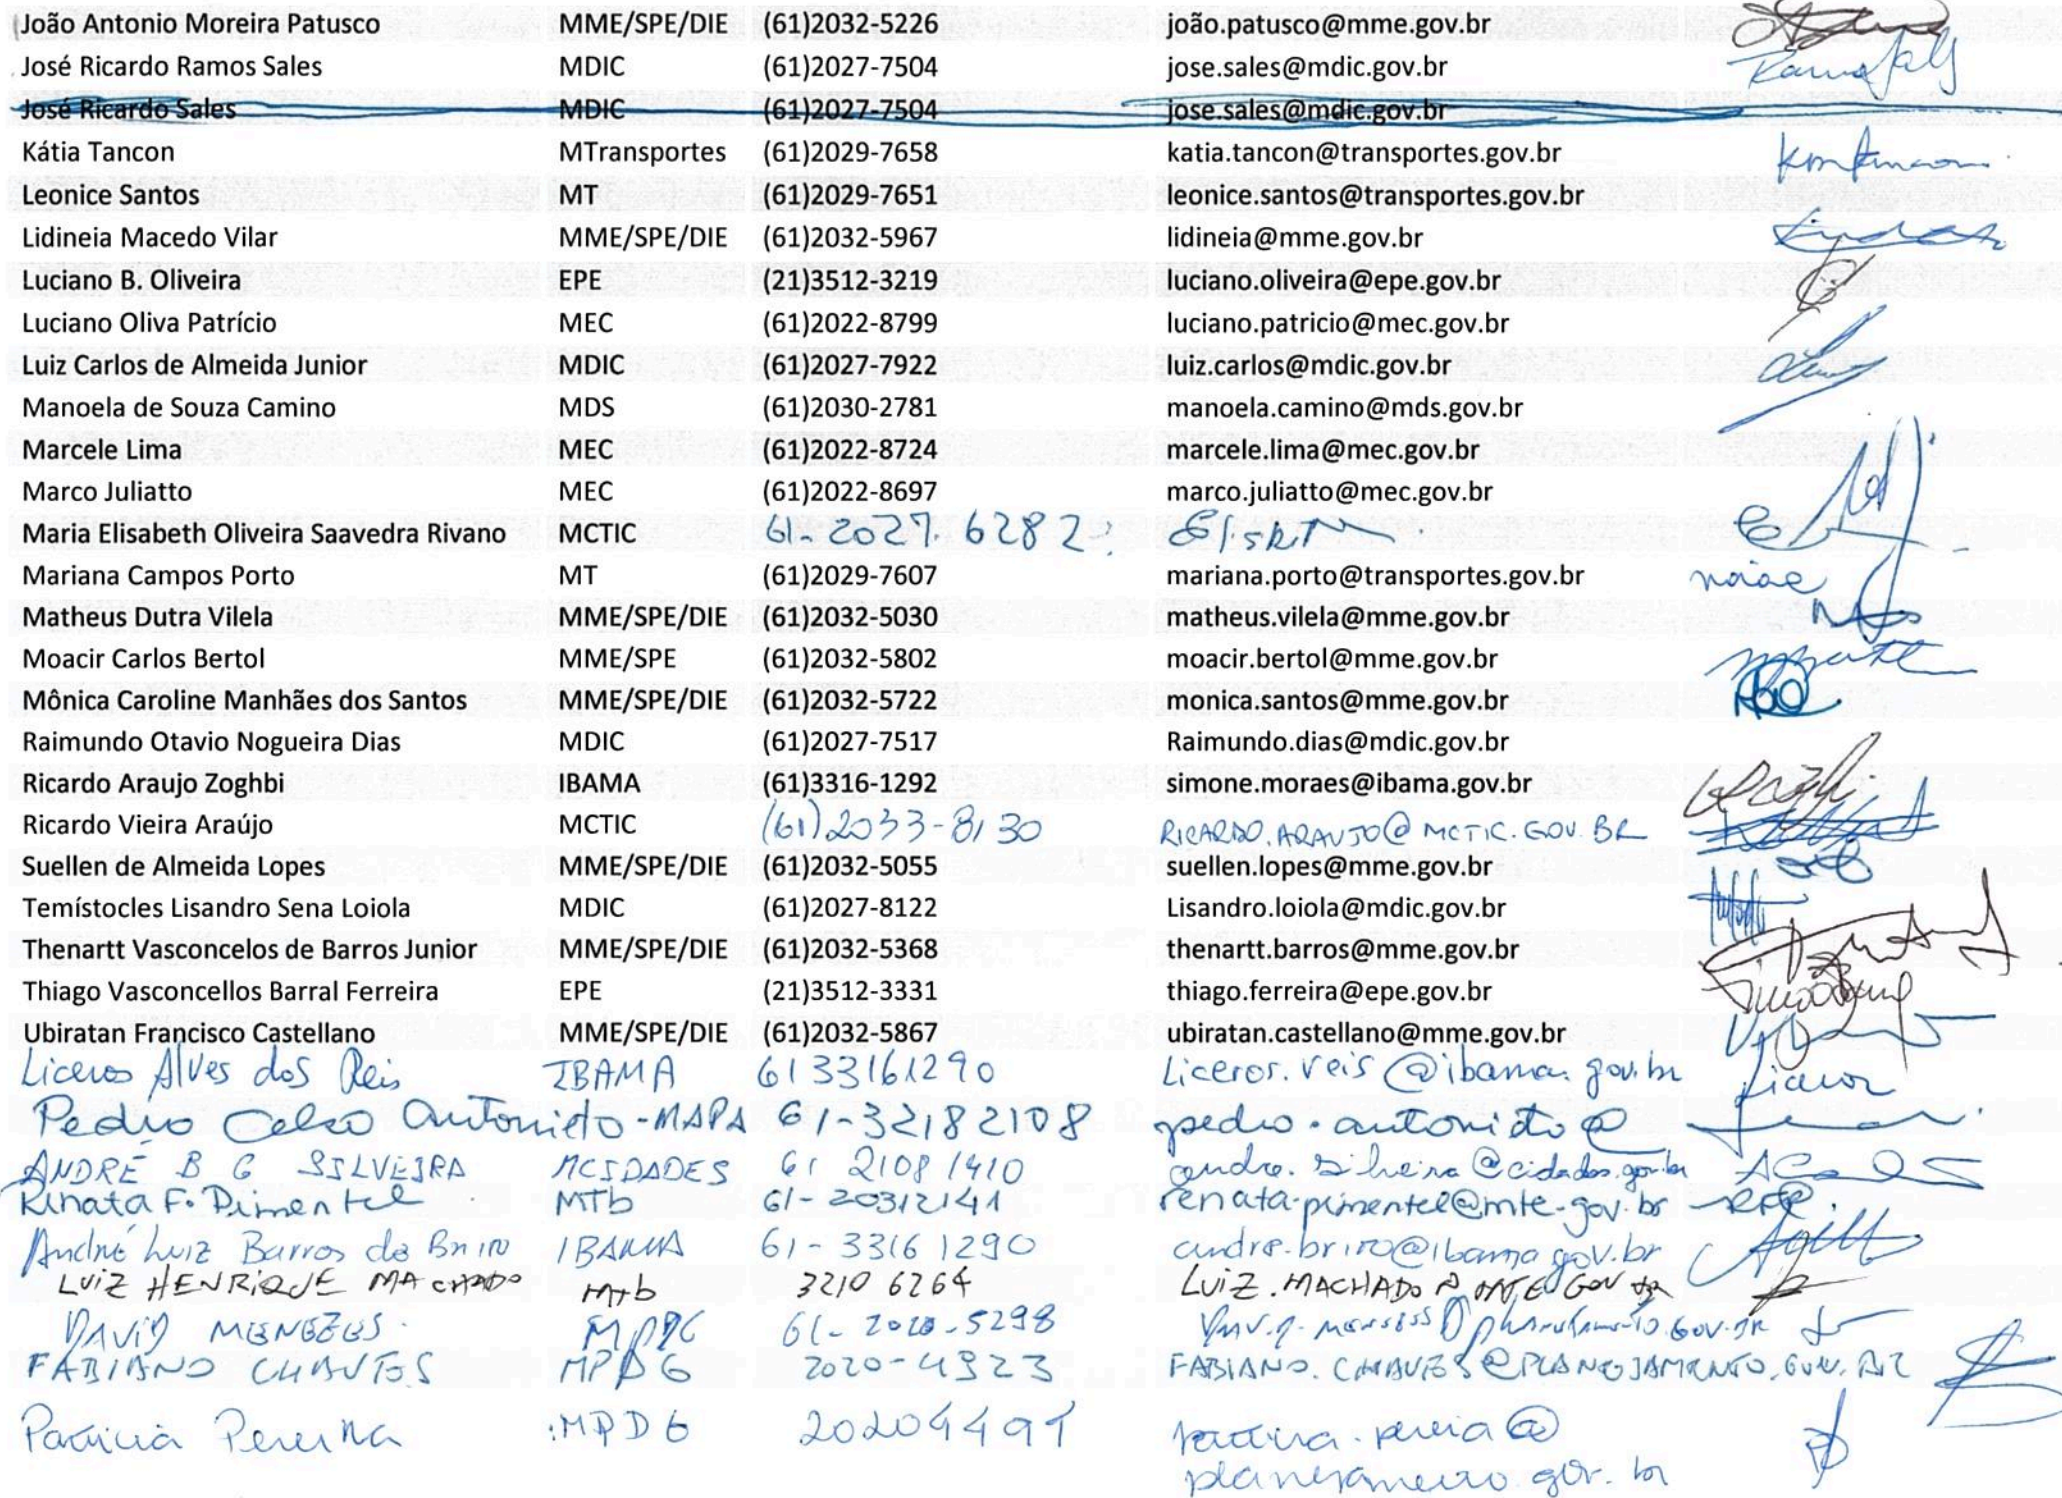 João Antonio Moreira Patusco MME/SPE/DIE (61)2032-5226 joão.patusco@mme.gov.br
José Ricardo Ramos Sales MDIC (61)2027-7504 jose.sales@mdic.gov.br
José Ricardo Sales MDIC (61)2027-7504 jose.sales@mdic.gov.br
Kátia Tancon MTransportes (61)2029-7658 katia.tancon@transportes.gov.br
Leonice Santos MT (61)2029-7651 leonice.santos@transportes.gov.br
Lidineia Macedo Vilar MME/SPE/DIE (61)2032-5967 lidineia@mme.gov.br
Luciano B. Oliveira EPE (21)3512-3219 luciano.oliveira@epe.gov.br
Luciano Oliva Patrício MEC (61)2022-8799 luciano.patricio@mec.gov.br
Luiz Carlos de Almeida Junior MDIC (61)2027-7922 luiz.carlos@mdic.gov.br
Manoela de Souza Camino MDS (61)2030-2781 manoela.camino@mds.gov.br
Marcele Lima MEC (61)2022-8724 marcele.lima@mec.gov.br
Marco Juliatto MEC (61)2022-8697 marco.juliatto@mec.gov.br
Maria Elisabeth Oliveira Saavedra Rivano MCTIC 61-2027.6282
Mariana Campos Porto MT (61)2029-7607 mariana.porto@transportes.gov.br
Matheus Dutra Vilela MME/SPE/DIE (61)2032-5030 matheus.vilela@mme.gov.br
Moacir Carlos Bertol MME/SPE (61)2032-5802 moacir.bertol@mme.gov.br
Mônica Caroline Manhães dos Santos MME/SPE/DIE (61)2032-5722 monica.santos@mme.gov.br
Raimundo Otavio Nogueira Dias MDIC (61)2027-7517 Raimundo.dias@mdic.gov.br
Ricardo Araujo Zoghbi IBAMA (61)3316-1292 simone.moraes@ibama.gov.br
Ricardo Vieira Araújo MCTIC (61)2033-8130 RICARDO.ARAUJO@MCTIC.GOV.BR
Suellen de Almeida Lopes MME/SPE/DIE (61)2032-5055 suellen.lopes@mme.gov.br
Temístocles Lisandro Sena Loiola MDIC (61)2027-8122 Lisandro.loiola@mdic.gov.br
Thenartt Vasconcelos de Barros Junior MME/SPE/DIE (61)2032-5368 thenartt.barros@mme.gov.br
Thiago Vasconcellos Barral Ferreira EPE (21)3512-3331 thiago.ferreira@epe.gov.br
Ubiratan Francisco Castellano MME/SPE/DIE (61)2032-5867 ubiratan.castellano@mme.gov.br
Liceros Alves dos Reis IBAMA 6133161290 Liceros.reis@ibama.gov.br
Pedro Celso Antonieto-MAPA 61-32182108 pedro.antonieto@
ANDRÉ B G SILVEIRA MCIDADES 61 21081410 andre.silveira@cidades.gov.br
Renata F. Pimentel MTb 61-20312141 renata.pimentel@mte.gov.br
André Luiz Barros de Brito IBAMA 61-33161290 andre.brito@ibama.gov.br
LUIZ HENRIQUE MACHADO Mtb 3210 6264 LUIZ.MACHADO@MTE.GOV.BR
DAVID MENEZES MPDG 61-2020-5298
FABIANO CHAVES MPDG 2020-4323 FABIANO.CHAVES@PLANEJAMENTO.GOV.BR
Patricia Pereira MPDG 20204491 patricia.pereira@
planejamento.gov.br